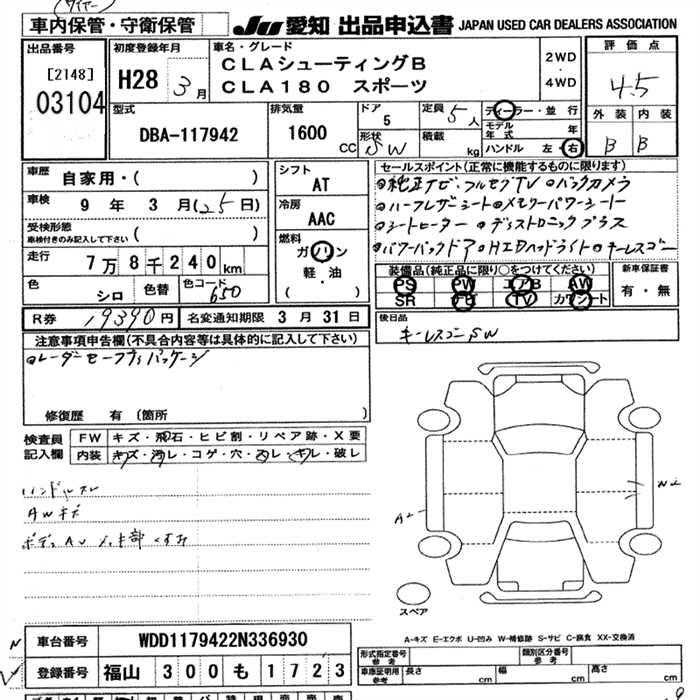 車内保管・守衛保管
JU 愛知 出品申込書 JAPAN USED CAR DEALERS ASSOCIATION
出品番号
[2148]
03104
初度登録年月
H28 3月
車名・グレード
CLAシューティングB
CLA180 スポーツ
2WD
・
4WD
評価点
4.5
外装 内装
B B
型式
DBA-117942
排気量
1600 CC
ドア
5
形状
SW
定員
5人
積載
kg
ディーラー・並行
モデル年式 年
ハンドル 左・右
車歴
自家用・( )
車検
9年 3月(25日)
受検形態
車検付きのみ記入して下さい ( )
走行
7万8千240km
色
シロ
色替
色コード
650
シフト
AT
冷房
AAC
燃料
ガソリン
軽・油
( )
セールスポイント(正常に機能するものに限ります)
●純正ナビ・フルセグTV ●バックカメラ
●ハーフレザーシート●メモリーパワーシート
●シートヒーター ●ディストロニックプラス
●パワーバックドア●HIDヘッドライト●キーレスゴー
装備品(純正品に限り○をつけてください)
PS PW エアB AW
SR TV カワシート
新車保証書
有・無
後日品
キーレスゴーSW
R券 19390円 名変通知期限 3月31日
注意事項申告欄(不具合内容等は具体的に記入して下さい)
●レーダーセーフティパッケージ
修復歴 有(箇所 )
検査員
記入欄
FW キズ・飛石・ヒビ割・リペア跡・X要
内装 キズ・汚レ・コゲ・穴・スレ・キレ・破レ
ハンドルスレ
AWキズ
ボディ AW メッキ部 くすみ
A2
W2
スペア
A-キズ E-エクボ U-凹み W-補修跡 S-サビ C-腐食 XX-交換済
車台番号 WDD1179422N336930
登録番号 福山 300 も 1723
形式指定番号
参考
類別区分番号
参考
車庫証明用
参考
長さ cm 幅 cm 高さ cm